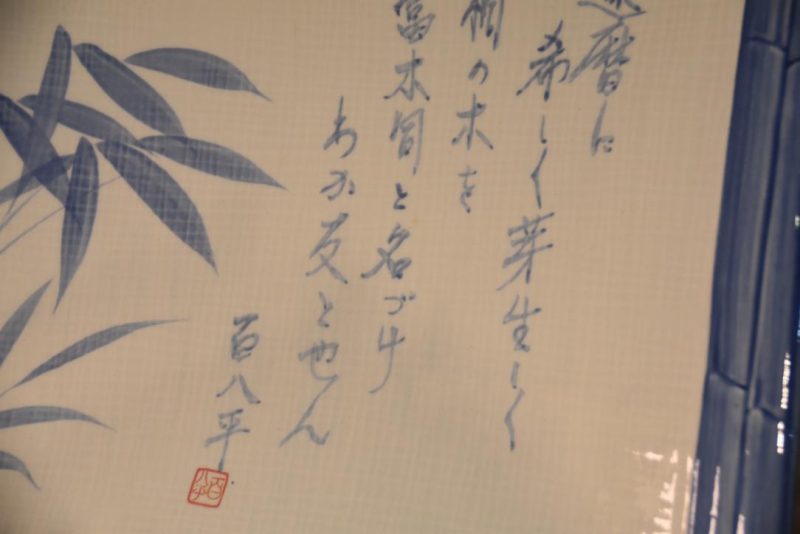 還暦に
希しく芽生しく
桐の木を
富木旬と名づけ
わが友とせん
百八平